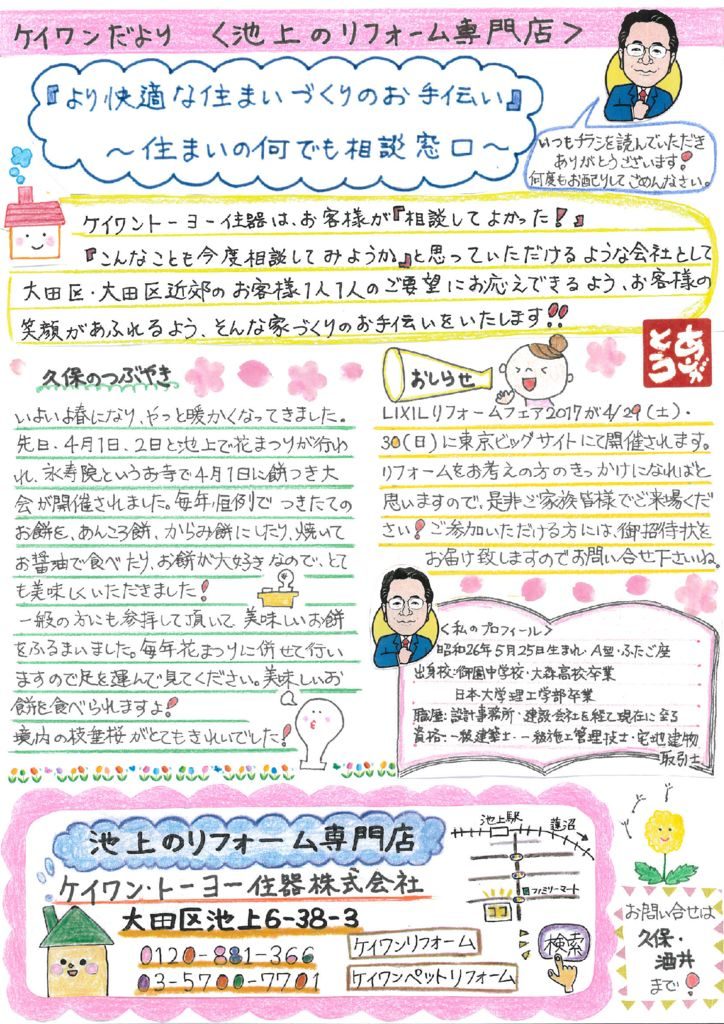 ケイワンだより 〈池上のリフォーム専門店〉
『より快適な住まいづくりのお手伝い』
～住まいの何でも相談窓口～
いつもチラシを読んでいただき
ありがとうございます!
何度もお配りしてごめんなさい。
ケイワントーヨー住器は、お客様が『相談してよかった!』
『こんなことも今度相談してみようか』と思っていただけるような会社として
大田区・大田区近郊のお客様1人1人のご要望にお応えできるよう、お客様の
笑顔があふれるよう、そんな家づくりのお手伝いをいたします!!
ありが
とう
久保のつぶやき
いよいよ春になり、やっと暖かくなってきました。
先日、4月1日、2日と池上で花まつりが行わ
れ、永寿院というお寺で4月1日に餅つき大
会が開催されました。毎年恒例で つきたての
お餅を、あんころ餅、からみ餅にしたり、焼いて
お醤油で食べたり、お餅が大好きなので、とて
も美味しくいただきました!
一般の方にも参拝して頂いて 美味しいお餅
をふるまいました。毎年花まつりに併せて行い
ますので足を運んで見てください。美味しいお
餅を食べられますよ!
境内の枝垂桜がとてもきれいでした!
おしらせ
LIXILリフォームフェア2017が4/29(土)・
30(日)に東京ビッグサイトにて開催されます。
リフォームをお考えの方のきっかけになればと
思いますので、是非ご家族皆様でご来場くだ
さい!ご参加いただける方には、御招待状を
お届け致しますのでお問い合せ下さいね。
〈私のプロフィール〉
昭和26年5月25日生まれ・A型・ふたご座
出身校:御園中学校・大森高校卒業
日本大学理工学部卒業
職歴:設計事務所・建設会社を経て現在に至る
資格:一級建築士・一級施工管理技士・宅地建物
取引士
池上のリフォーム専門店
ケイワン・トーヨー住器株式会社
大田区池上6-38-3
0120-881-366
03-5700-7701
ケイワンリフォーム
ケイワンペットリフォーム
検索
池上駅
蓮沼
ファミリーマート
ココ
お問い合せは
久保・
酒井
まで!